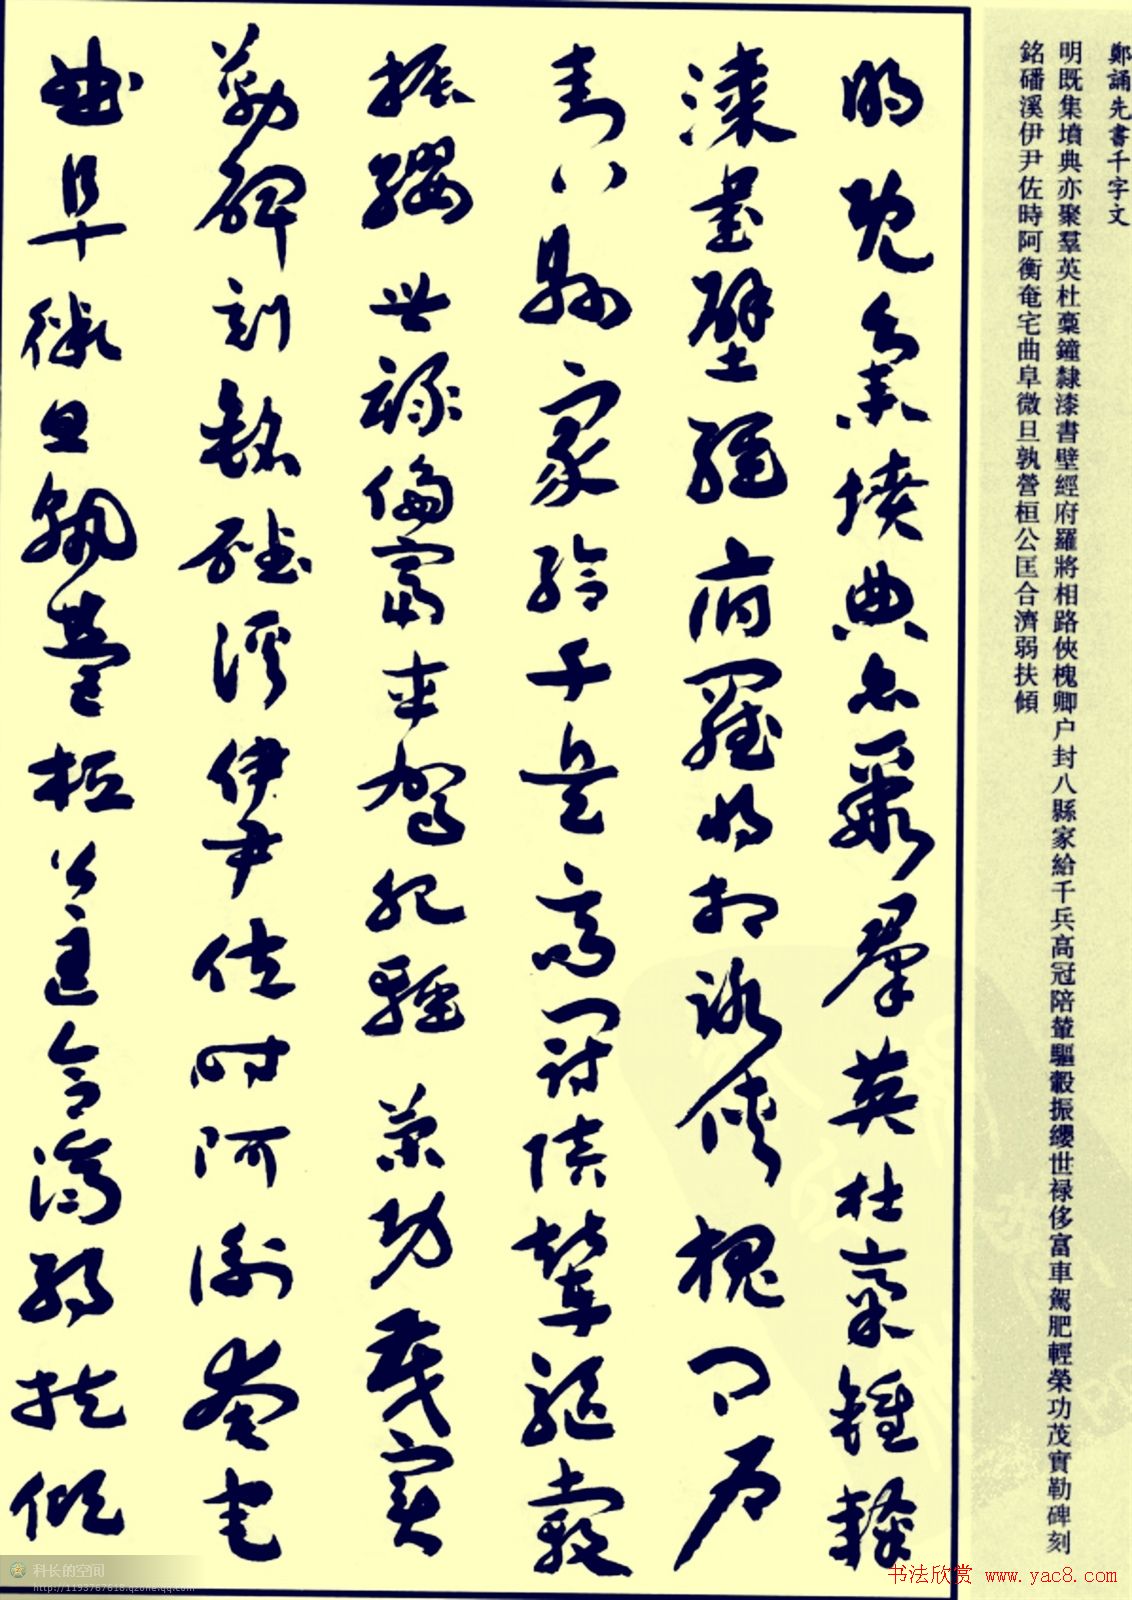 鄭誦先書千字文
明既集墳典亦聚羣英杜稾鐘隸漆書壁經府羅將相路俠槐卿户封八縣家給千兵高冠陪輦驅轂振纓世禄侈富車駕肥輕榮功茂實勒碑刻
銘磻溪伊尹佐時阿衡奄宅曲阜微旦孰營桓公匡合濟弱扶傾
明既集墳典亦聚羣英杜稾鍾隸
漆書壁經府羅將相路俠槐卿户
封八縣家給千兵高冠陪輦驅轂
振纓世禄侈富車駕肥輕策功茂實
勒碑刻銘磻溪伊尹佐時阿衡奄宅
曲阜微旦孰營桓公匡合濟弱扶傾
科长的空间
http://1193767618.qzone.qq.com
书法欣赏 www.yac8.com